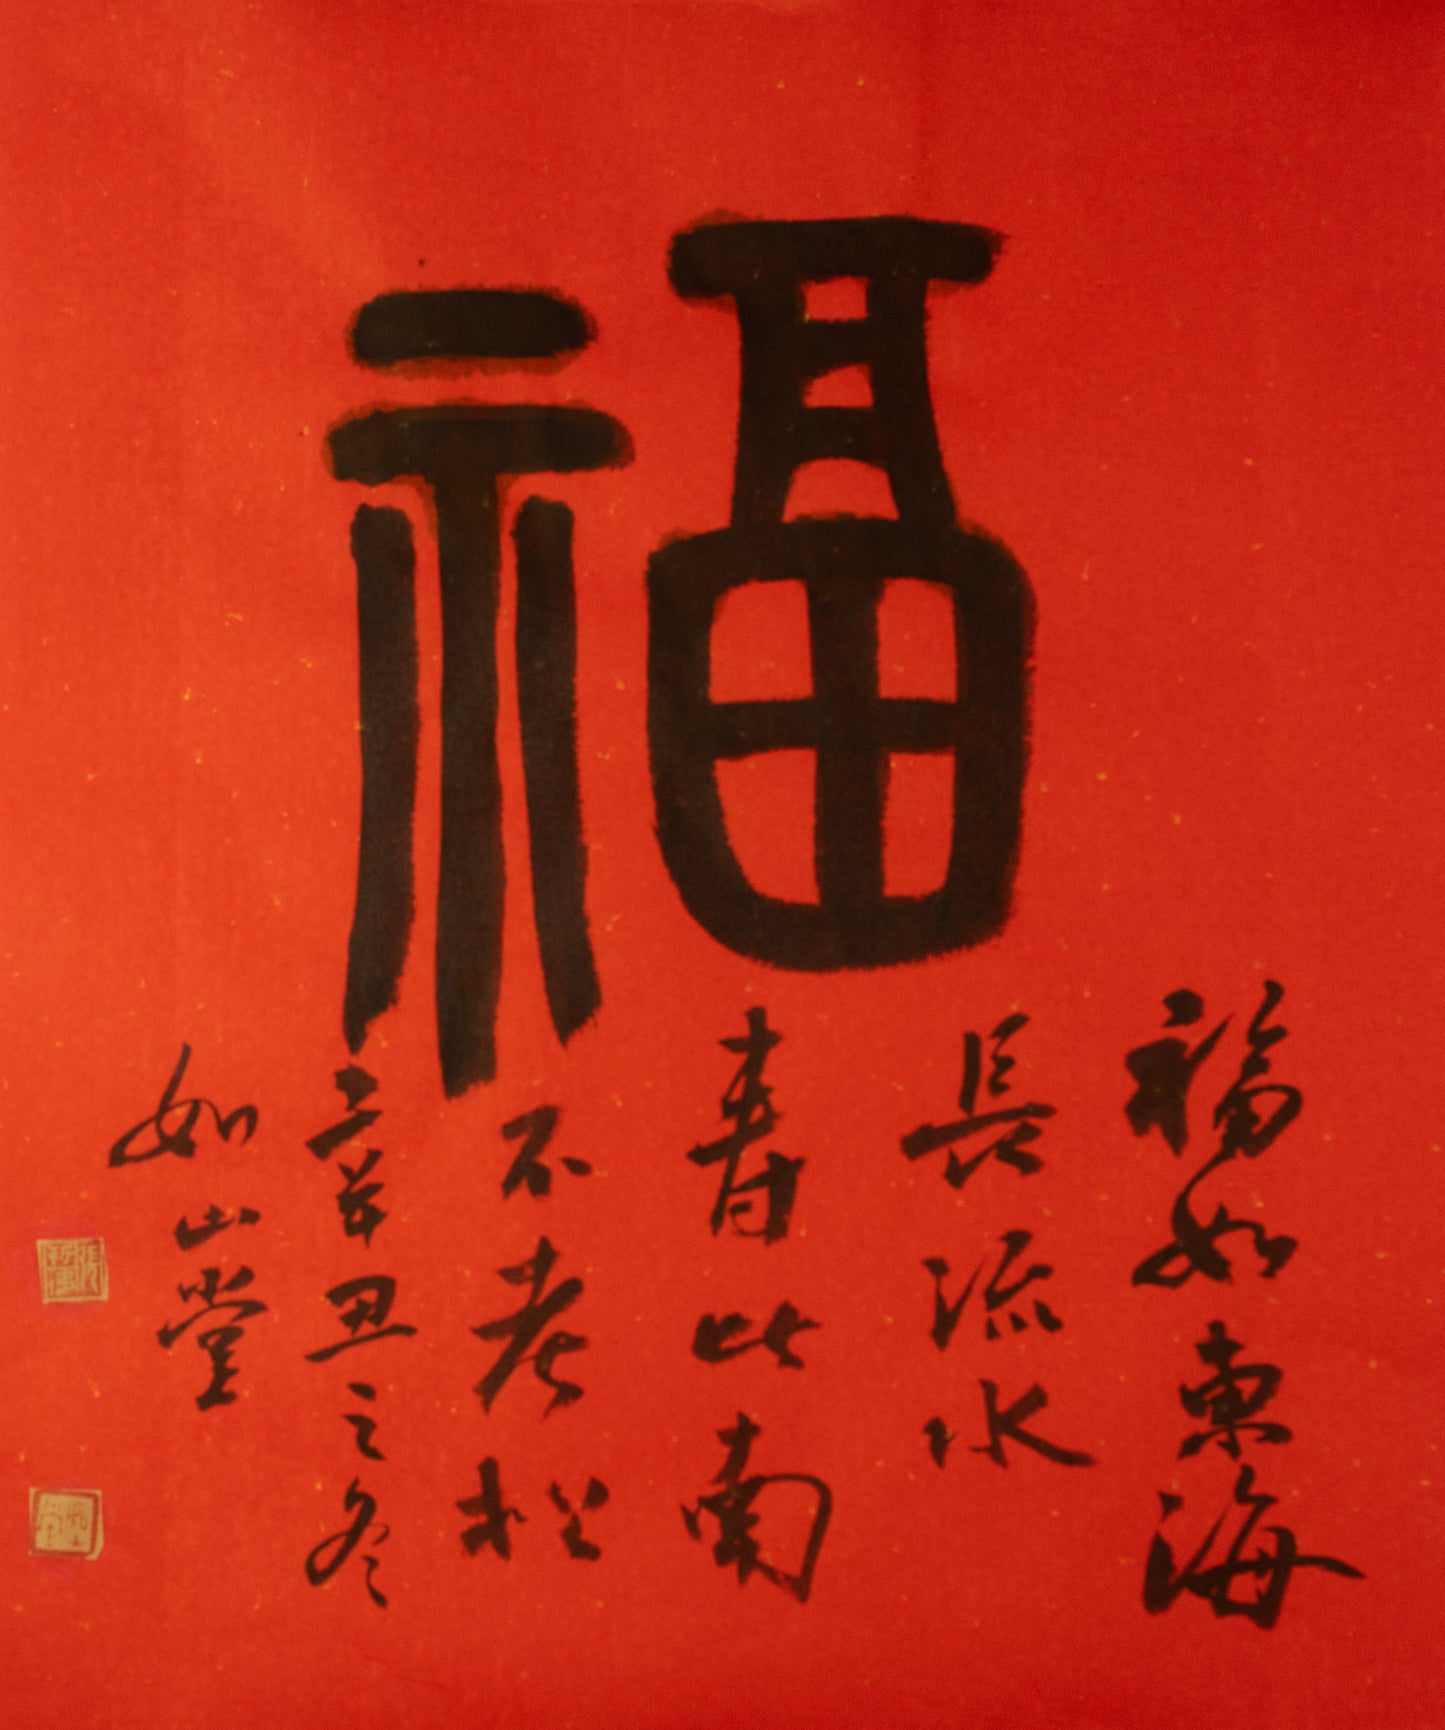 福
福如東海
長流水
寿比南
不老松
辛丑之冬
如山堂